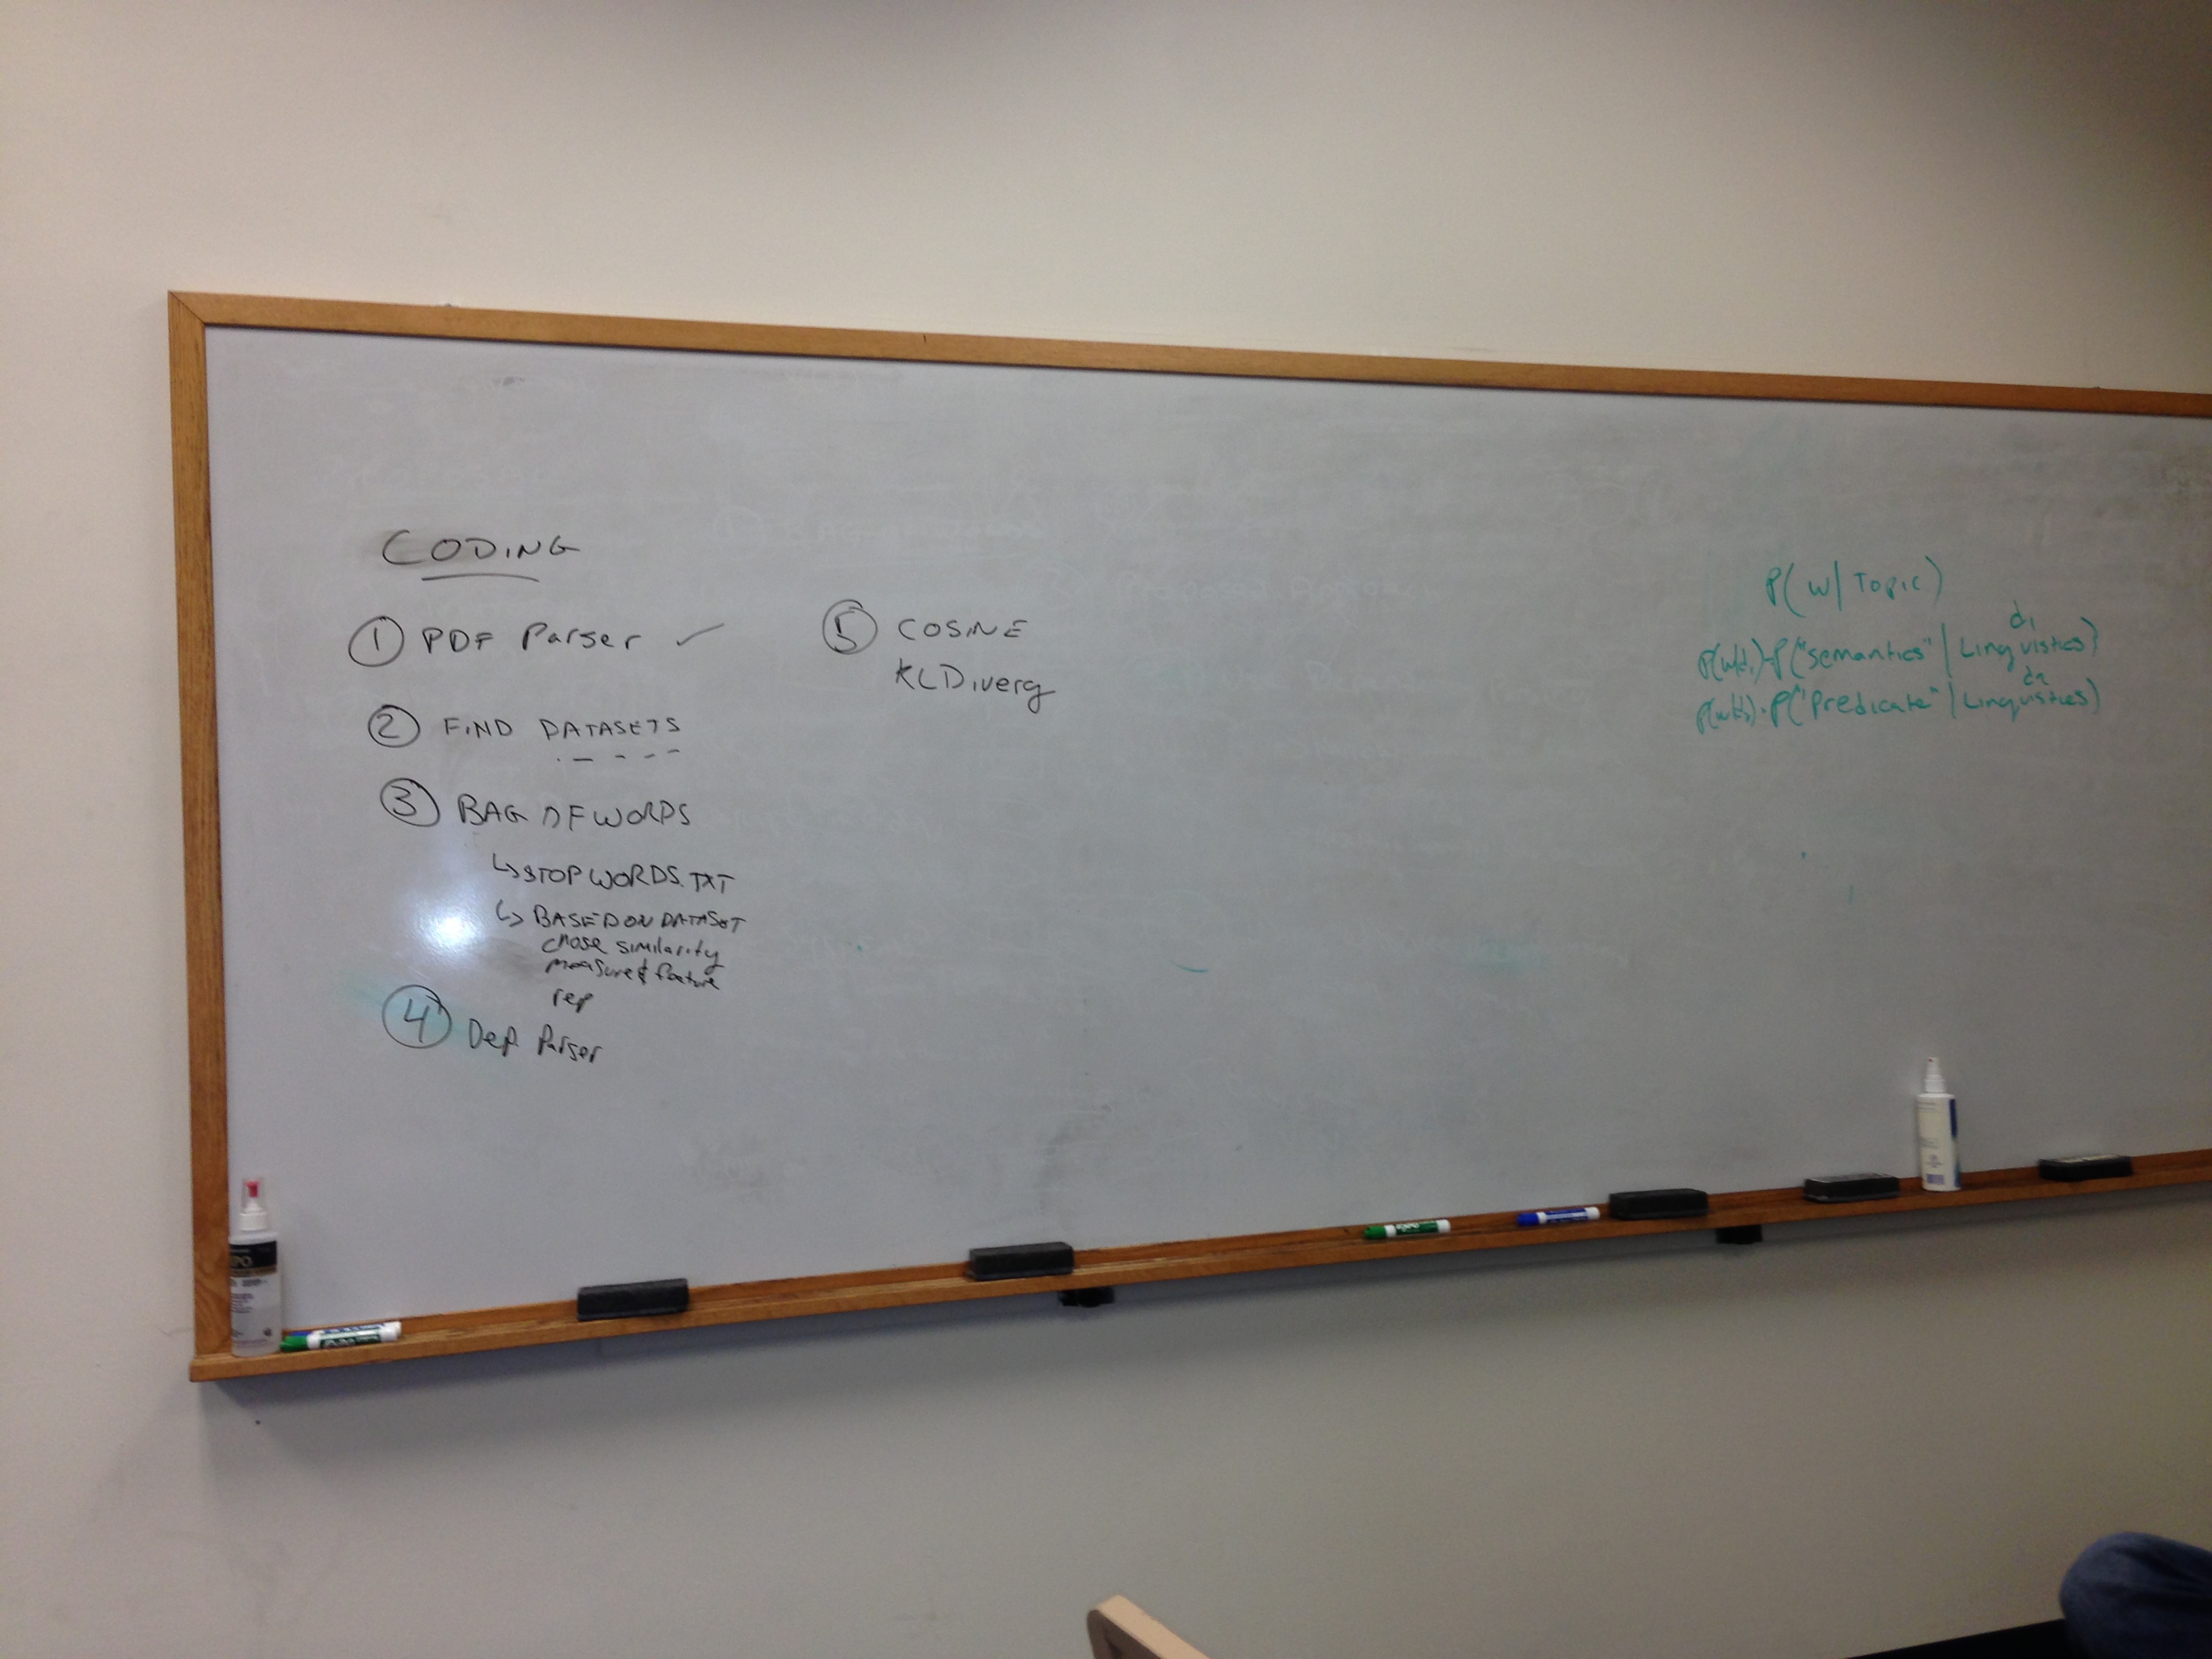 CODING
① PDF Parser ✓
② FIND DATASETS
③ BAG OF WORDS
↳ STOPWORDS.TXT
↳ BASED ON DATASET
chose similarity
measure & feature
rep
④ Dep Parser
⑤ COSINE
KLDiverg
P(w|Topic)
d1
P(w|d1)·P("semantics"|Linguistics)
d2
P("Predicate"|Linguistics)